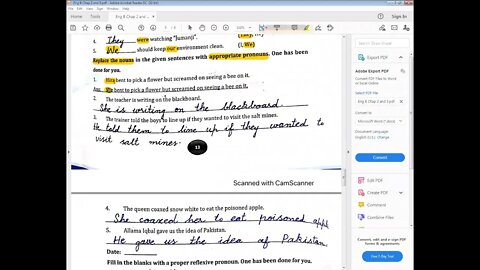 Home Tools
Sign In
4. They were watching "Jumanji".
5. We should keep our environment clean. (I, We)
Replace the nouns in the given sentences with appropriate pronouns. One has been
done for you.
1. Hira bent to pick a flower but screamed on seeing a bee on it.
Ans. She bent to pick a flower but screamed on seeing a bee on it.
2. The teacher is writing on the blackboard.
She is writing on the blackboard.
3. The trainer told the boys to line up if they wanted to visit the salt mines.
He told them to line up if they wanted to
visit salt mines.
13
Scanned with CamScanner
4. The queen coaxed snow white to eat the poisoned apple.
She coaxed her to eat poisoned
5. Allama Iqbal gave us the idea of Pakistan.
He gave us the idea of Pakistan.
Date:
Fill in the blanks with a proper reflexive pronoun. One has been done for you.
Export PDF
Adobe Export PDF
Convert PDF Files to Word
or Excel Online
Convert to
Microsoft Word (*.docx)
Document Language:
Change
Convert
Create PDF
Edit PDF
Comment
Combine Files
Convert, edit and e-sign PDF
forms & agreements